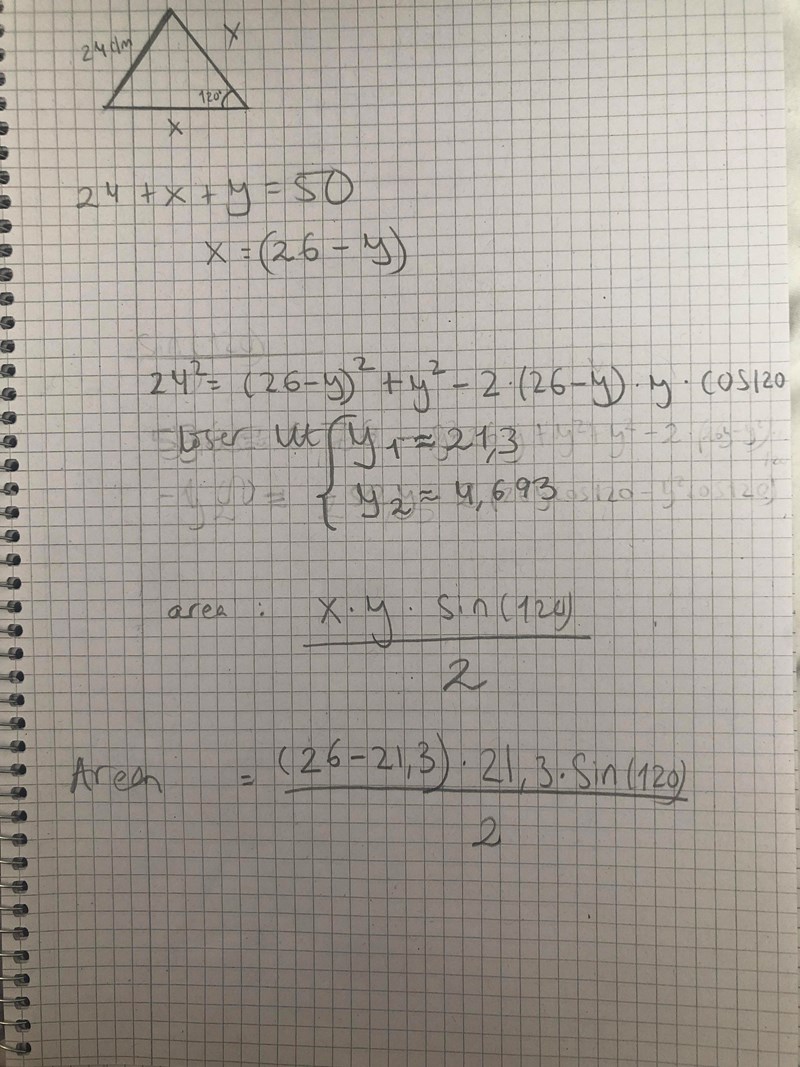 24dm
x
120°
x
24 + x + y = 50
x = (26 - y)
24² = (26-y)² + y² - 2·(26-y)·y·cos120
löser ut { y₁ ≈ 21,3
y₂ ≈ 4,693
area : x·y·sin(120)
2
Arean = (26-21,3)·21,3·sin(120)
2